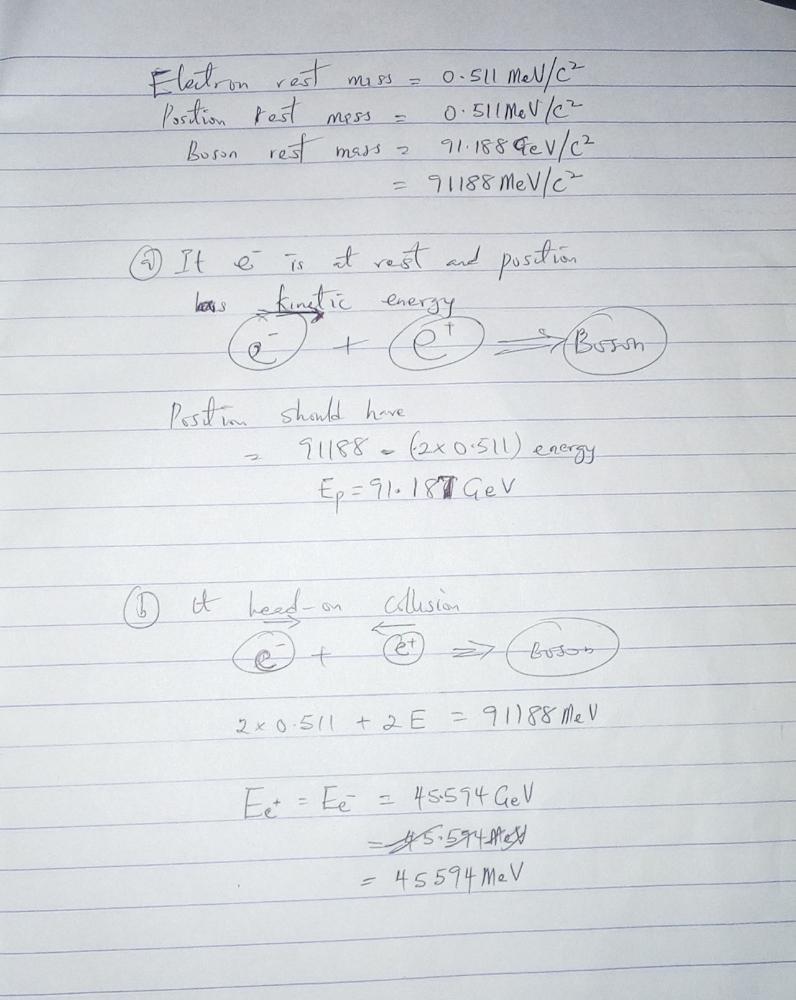 Electron rest mass = 0.511 MeV/c²
Position rest mass = 0.511 MeV/c²
Boson rest mass = 91.188 GeV/c²
= 91188 MeV/c²
(a) It e⁻ is at rest and position
has kinetic energy
e⁻ + e⁺ ⇒ Boson
Position should have
= 91188 - (2×0.511) energy
Ep = 91.187 GeV
(b) It head-on collision
e⁻ + e⁺ ⇒ Boson
2×0.511 + 2E = 91188 MeV
Ee⁺ = Ee⁻ = 45.594 GeV
= 45.594 MeV
= 45594 MeV